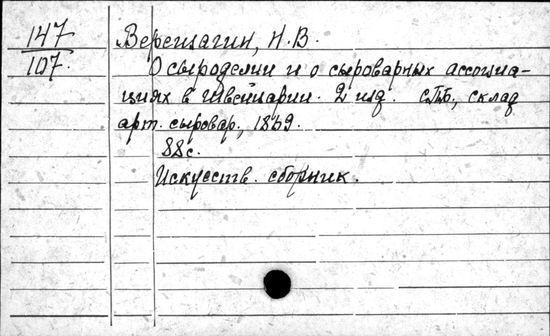 147
107.
Верещагин, Н.В.
О сыроделии и о сыроварных ассоциа-
циях в Швейцарии. 2 изд. СПБ., склад
арт. сыровар., 1869.
88с.
Искусств. сборник.